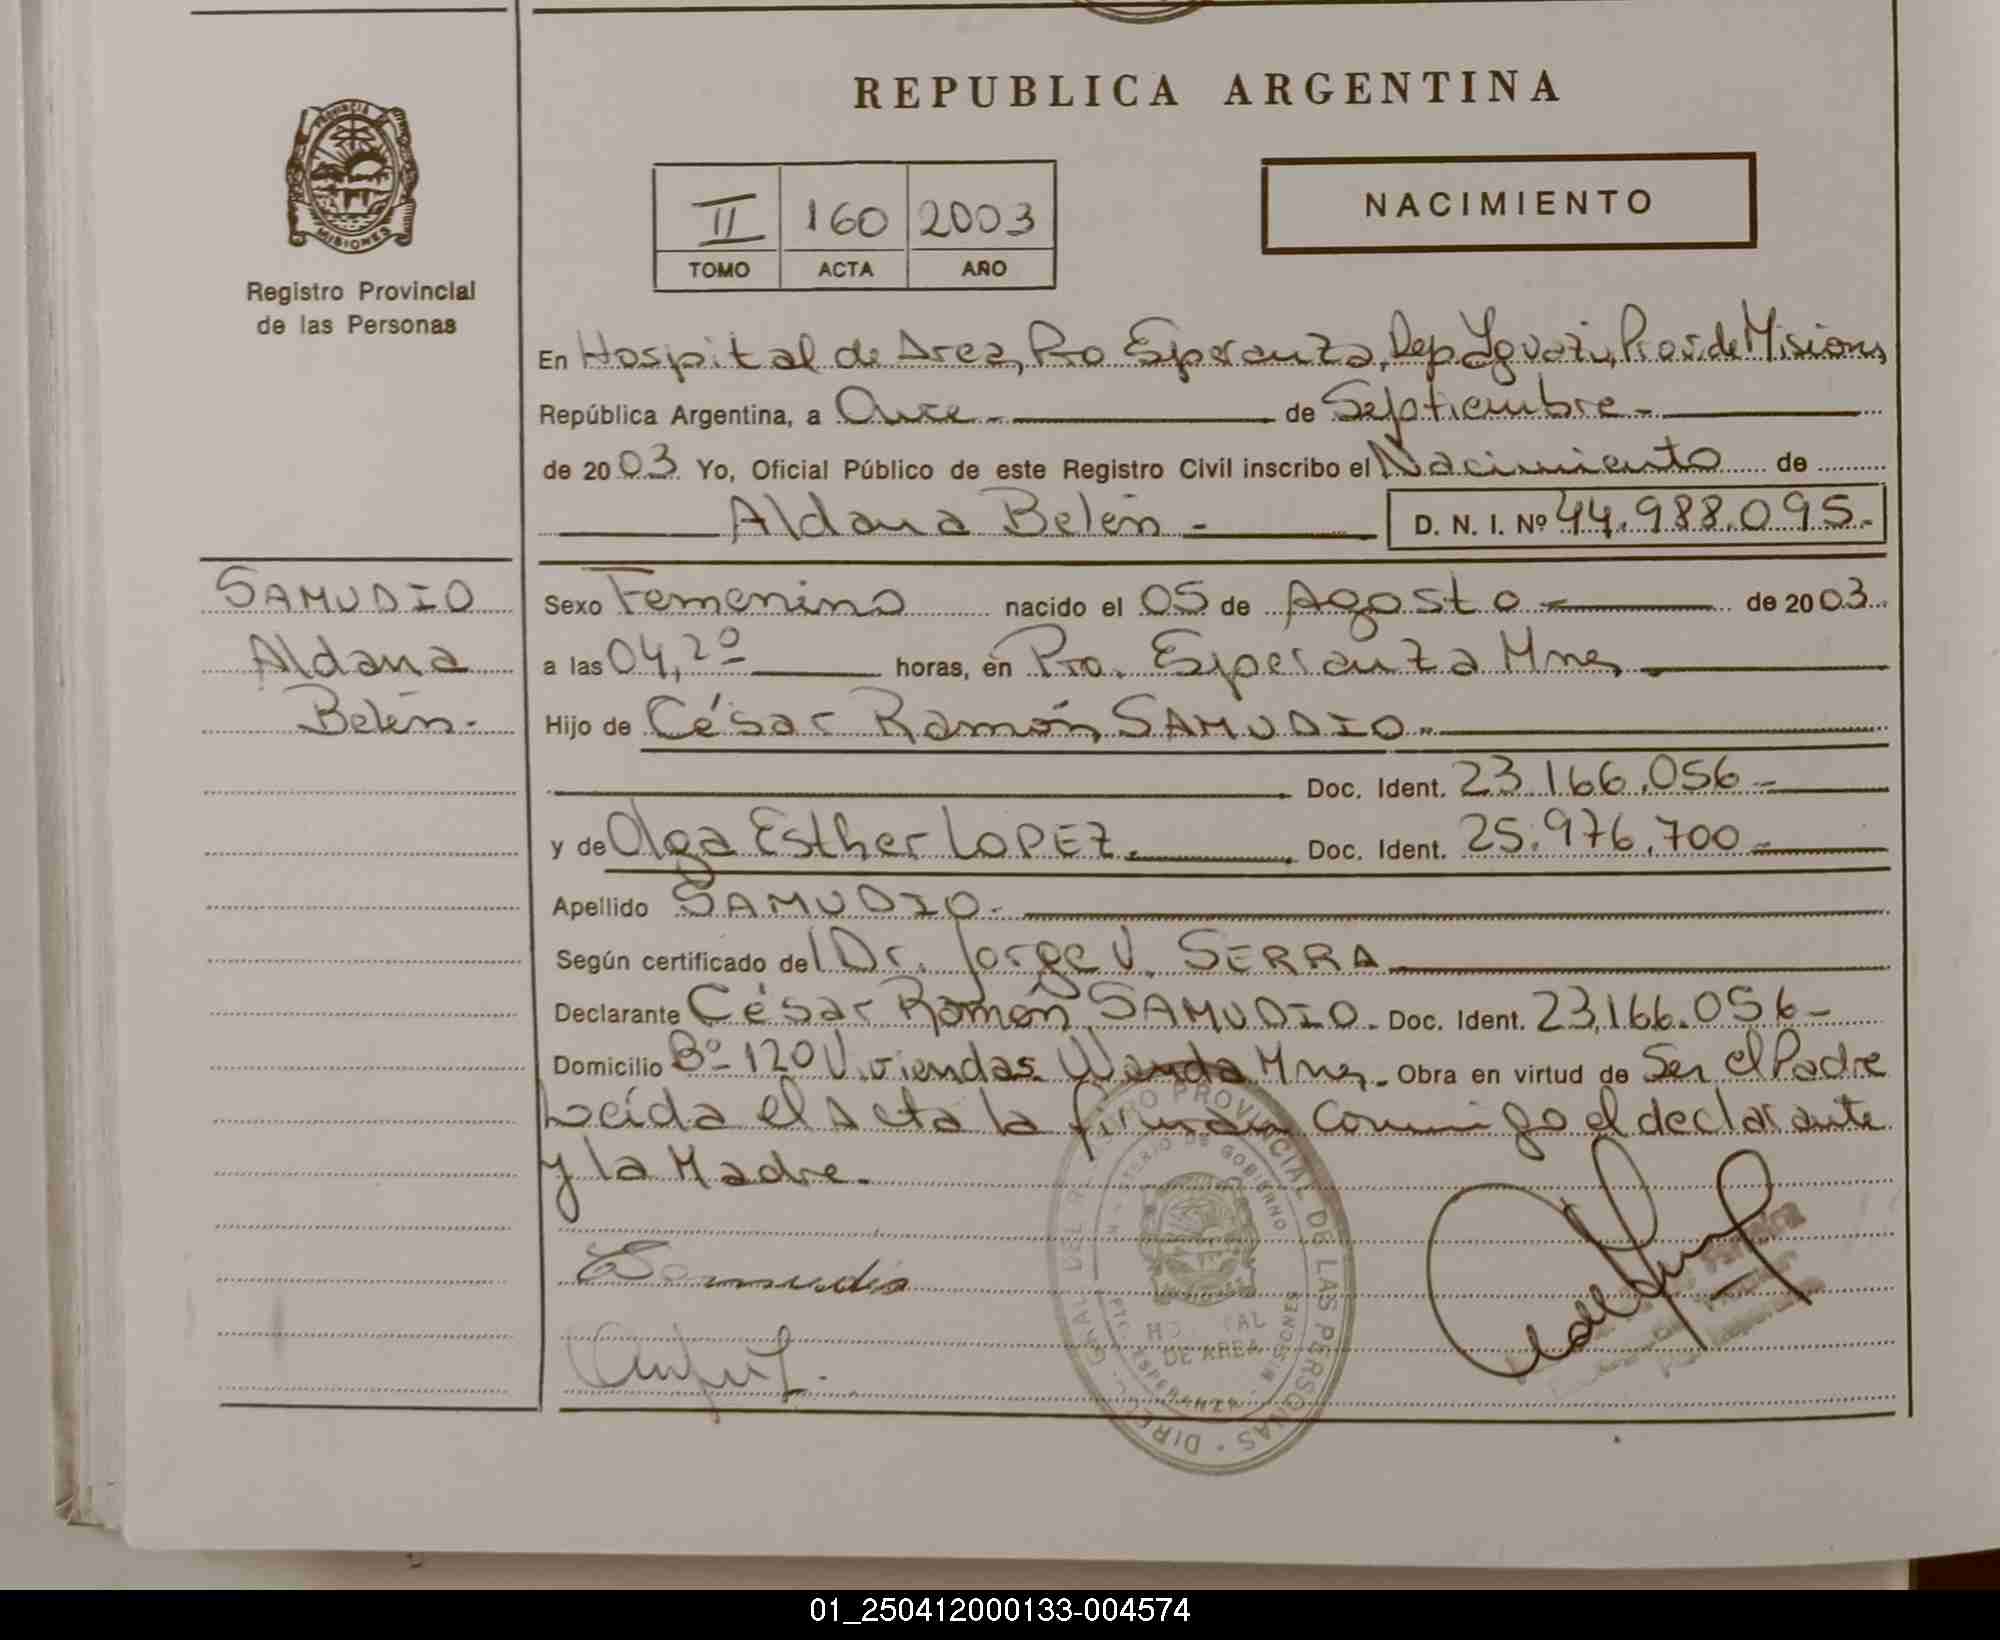 REPUBLICA ARGENTINA
PROVINCIA DE
MISIONES
Registro Provincial
de las Personas
II 160 2003
TOMO ACTA AÑO
NACIMIENTO
En Hospital de Area, Pto Esperanza, Dep. Iguazú, Prov. de Misiones
República Argentina, a Once.- de Septiembre -
de 2003 Yo, Oficial Público de este Registro Civil inscribo el Nacimiento de
Aldana Belén - D. N. I. Nº 44.988.095.-
SAMUDIO
Aldana
Belén.-
Sexo Femenino nacido el 05 de Agosto - de 2003
a las 04,20 horas, en Pto. Esperanza Mnes
Hijo de César Ramón SAMUDIO.-
Doc. Ident. 23.166.056-
y de Olga Esther LOPEZ. Doc. Ident. 25.976.700-
Apellido SAMUDIO.
Según certificado del Dr. Jorge V. SERRA
Declarante César Ramón SAMUDIO. Doc. Ident. 23.166.056-
Domicilio Bº 120 Viviendas Wanda Mnes. Obra en virtud de Ser el Padre
Leída el Acta la firman conmigo el declarante
y la Madre.
Samudio
DE AREA
01_250412000133-004574